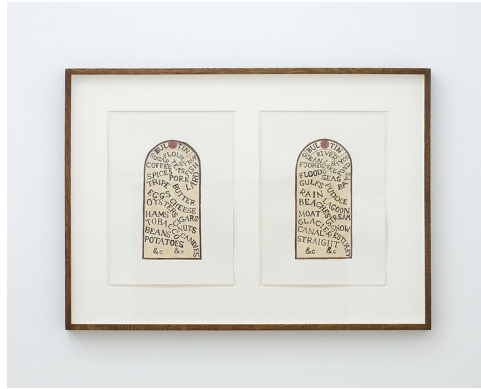 BUL TIN
FLOUR
COFFEE TEA
SPICES PORK
TRIPE BUTTER
EGGS CHEESE
OYSTERS
HAMS CIGARS
TOBACCO NUTS
BEANS CANDIES
POTATOES
&c &c
BUL TIN
RIVER
FJORDS
FLOOD SEAS
GULFS PUDDLE
RAIN LAGOON
BEACHES
MOAT
GLACIER SNOW
CANAL ESTUARY
STRAIGHT
&c &c